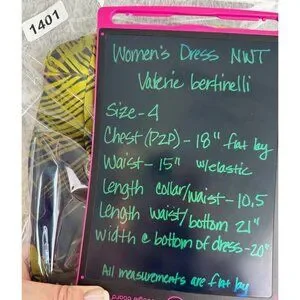 1401
Women's Dress NWT
Valerie bertinelli
Size - 4
Chest (P2P) - 18" flat lay
Waist - 15" w/elastic
Length collar/waist - 10.5
Length waist/bottom 21"
Width @ bottom of dress - 20"
All measurements are flat lay